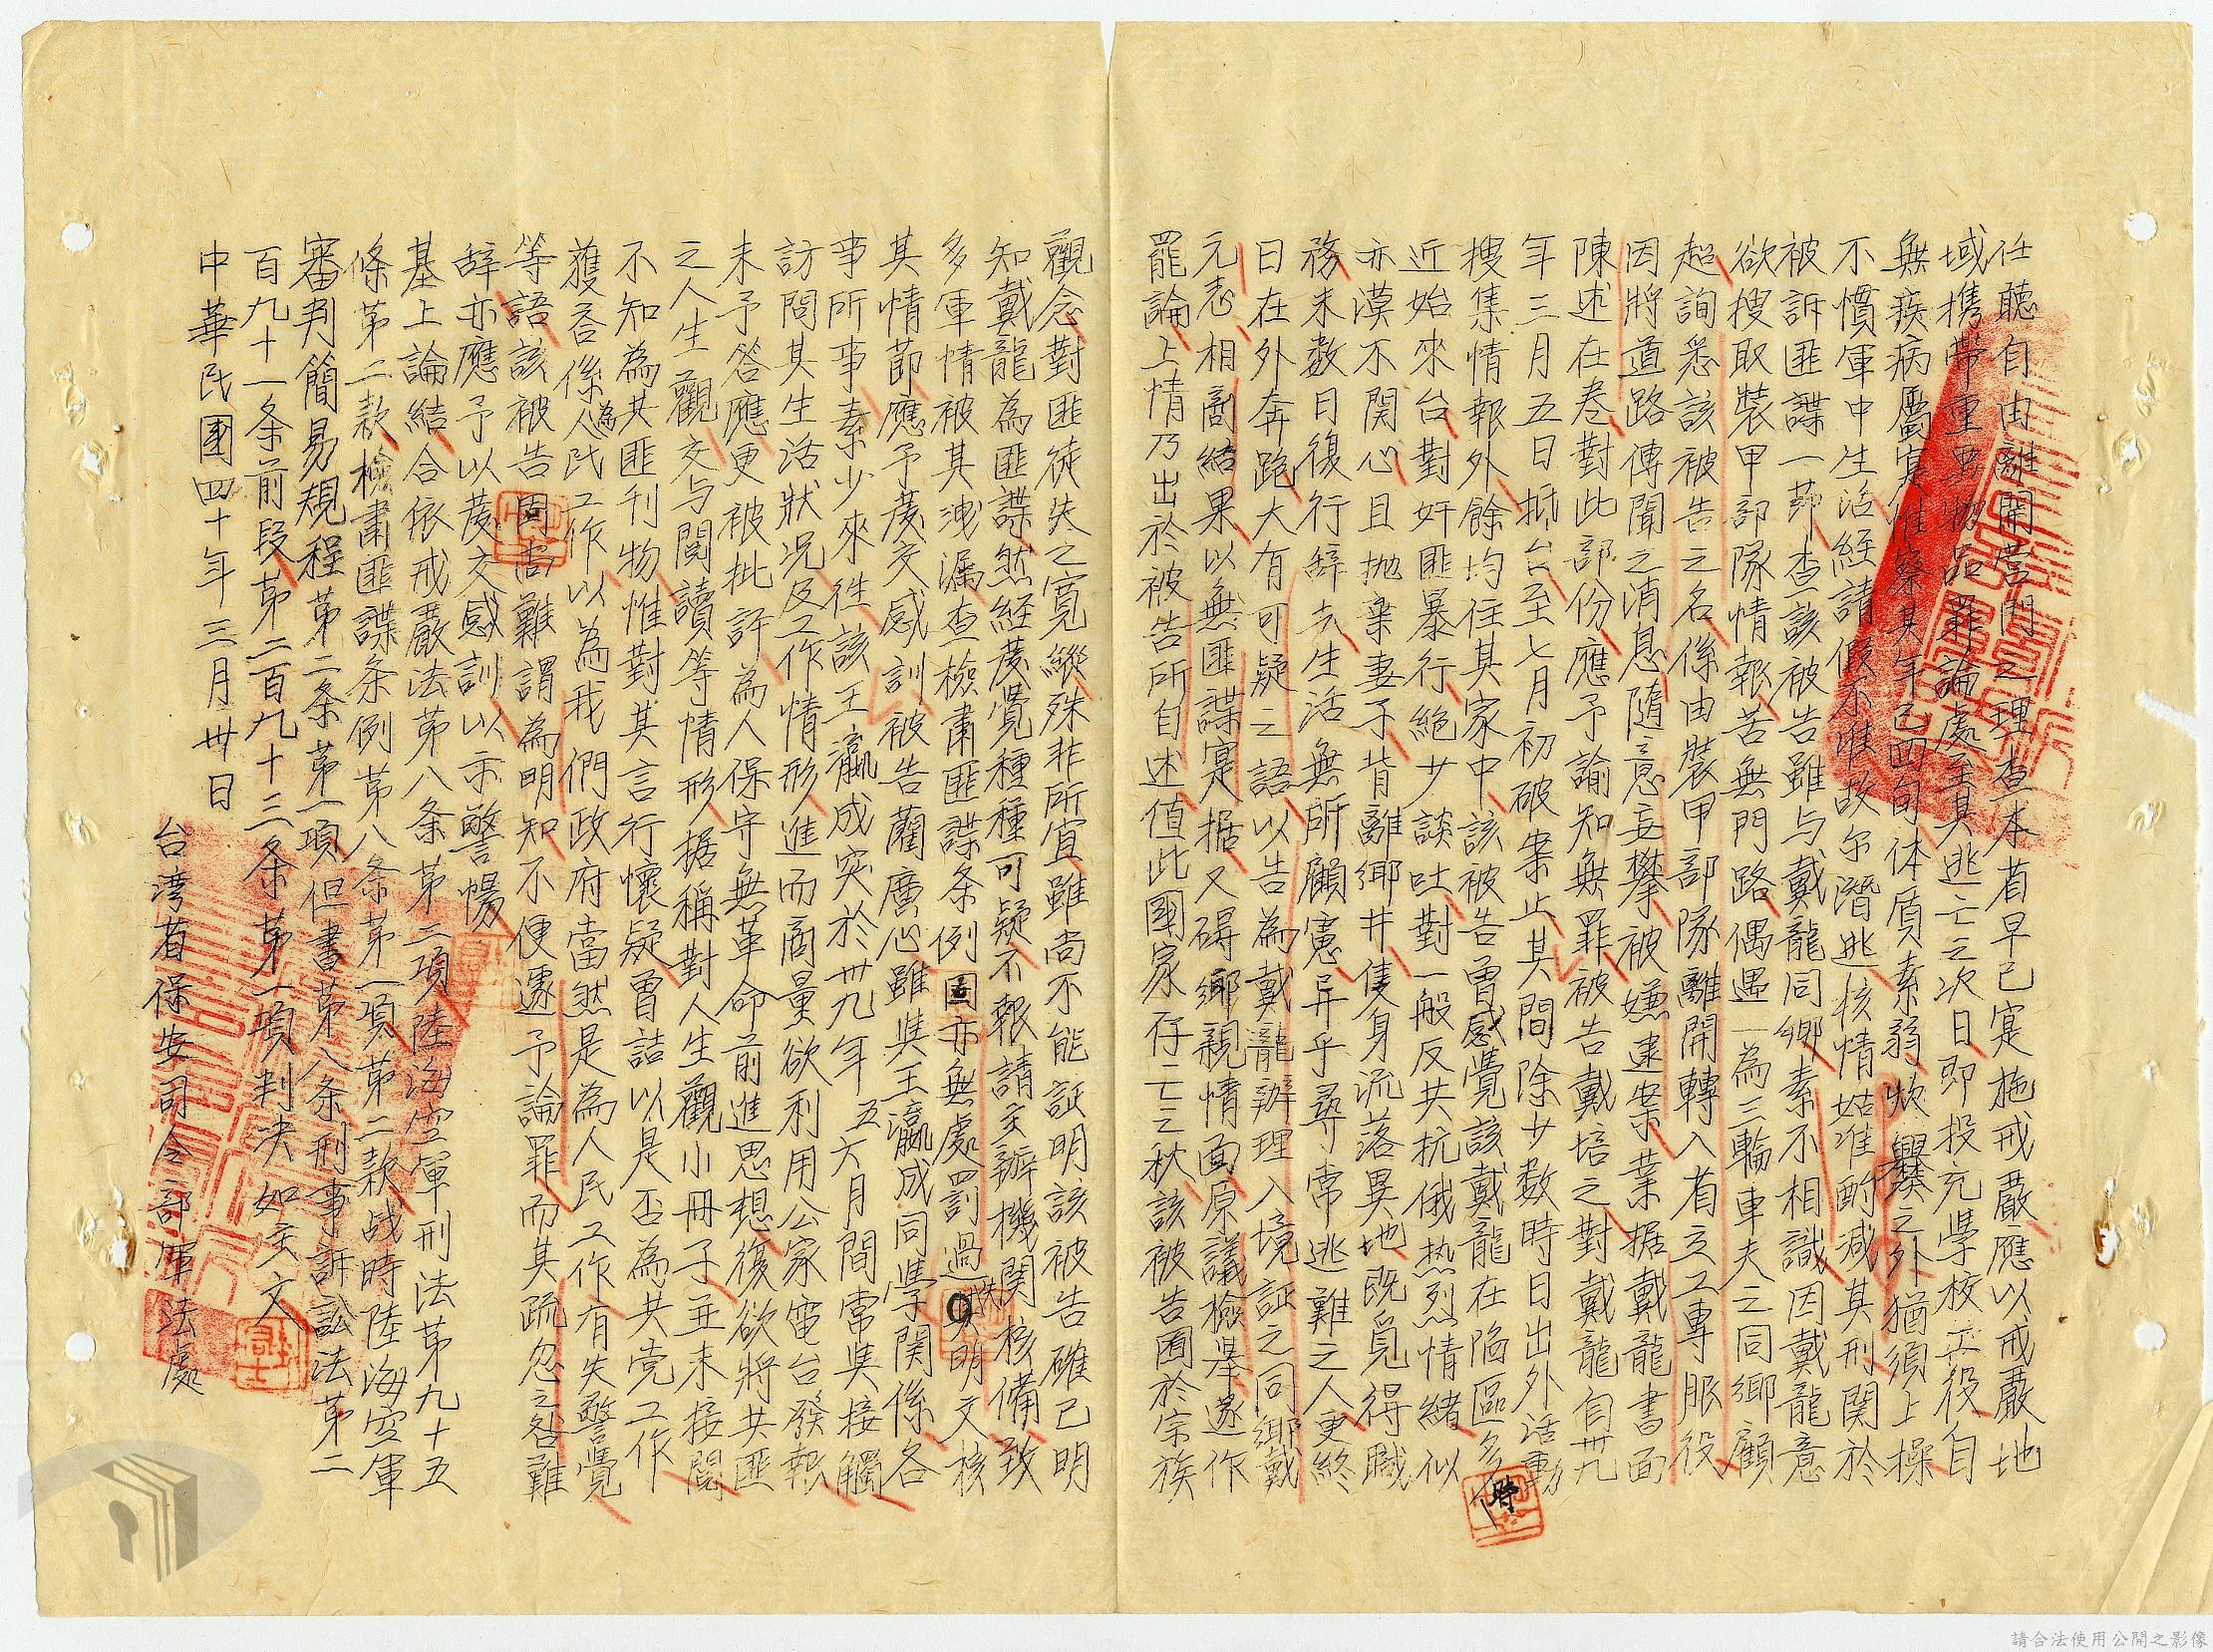 任聽自由離開營門之理查本省早已寔施戒嚴應以戒嚴地
域携帶重要物品罪論處至其逃亡之次日即投充學校工役自
無疾病屬寔惟察其年已四旬体質素弱炊爨之外猶須上操
不慣軍中生活經請假不准故尔潛逃核情姑准酌減其刑関於
被訴匪諜一節查該被告雖与戴龍同鄉素不相識因戴龍意
欲搜取裝甲部隊情報苦無門路偶遇一為三輪車夫之同鄉顧
超詢悉該被告之名係由裝甲部隊離開轉入省立工專服役
因將道路傳聞之消息隨意妄攀被嫌逮案業据戴龍書面
陳述在卷對此部份應予諭知無罪被告戴培之對戴龍自卅九
年三月五日抵台至七月初破案止其間除廿数時日出外活動
搜集情報外餘均住其家中該被告曾感覺該戴龍在陷區多時
近始來台對奸匪暴行絕少談吐對一般反共抗俄热烈情緒似
亦漠不関心且抛棄妻子背離鄉井隻身流落異地既覓得職
務未数日復行辞去生活無所顧憲异乎尋常逃難之人更終
日在外奔跑大有可疑之語以告為戴龍辦理入境証之同鄉戴
元志相商結果以無匪諜寔据又碍鄉親情面原議檢舉遂作
罷論上情乃出於被告所自述值此國家存亡之秋該被告囿於宗族
觀念對匪徒失之寬縱殊非所宜雖尚不能証明該被告確已明
知戴龍為匪諜然経蔆覺種種可疑不報請主辦機関核備致
多軍情被其洩漏查檢肅匪諜条例固亦無處罰過失明文核
其情節應予蔆交感訓被告藺廣心雖與王瀛成同學関係各
事所事素少來往該王瀛成突於卅九年五六月間常與接觸
訪問其生活狀况及工作情形進而商量欲利用公家電台發報
未予答應更被批評為人保守無革命前進思想復欲將共匪
之人生觀交与閱讀等情形据稱對人生觀小冊子並未接閱
不知為其匪刊物惟對其言行懷疑曾詰以是否為共党工作
獲答係為人民工作以為我們政府當然是為人民工作有失警覺
等語該被告固尚難謂為明知不便遽予論罪而其疏忽之咎難
辞亦應予以蔆交感訓以示警惕
基上論結合依戒嚴法第八条第二項陸海空軍刑法第九十五
條第二款檢肅匪諜条例第八条第一項第二款战時陸海空軍
審判簡易規程第二条第一項但書第八条刑事訴訟法第二
百九十一条前段第二百九十三条第一項判决如主文
中華民國四十年三月卅日
台湾省保安司令部軍法處
請合法使用公開之影像